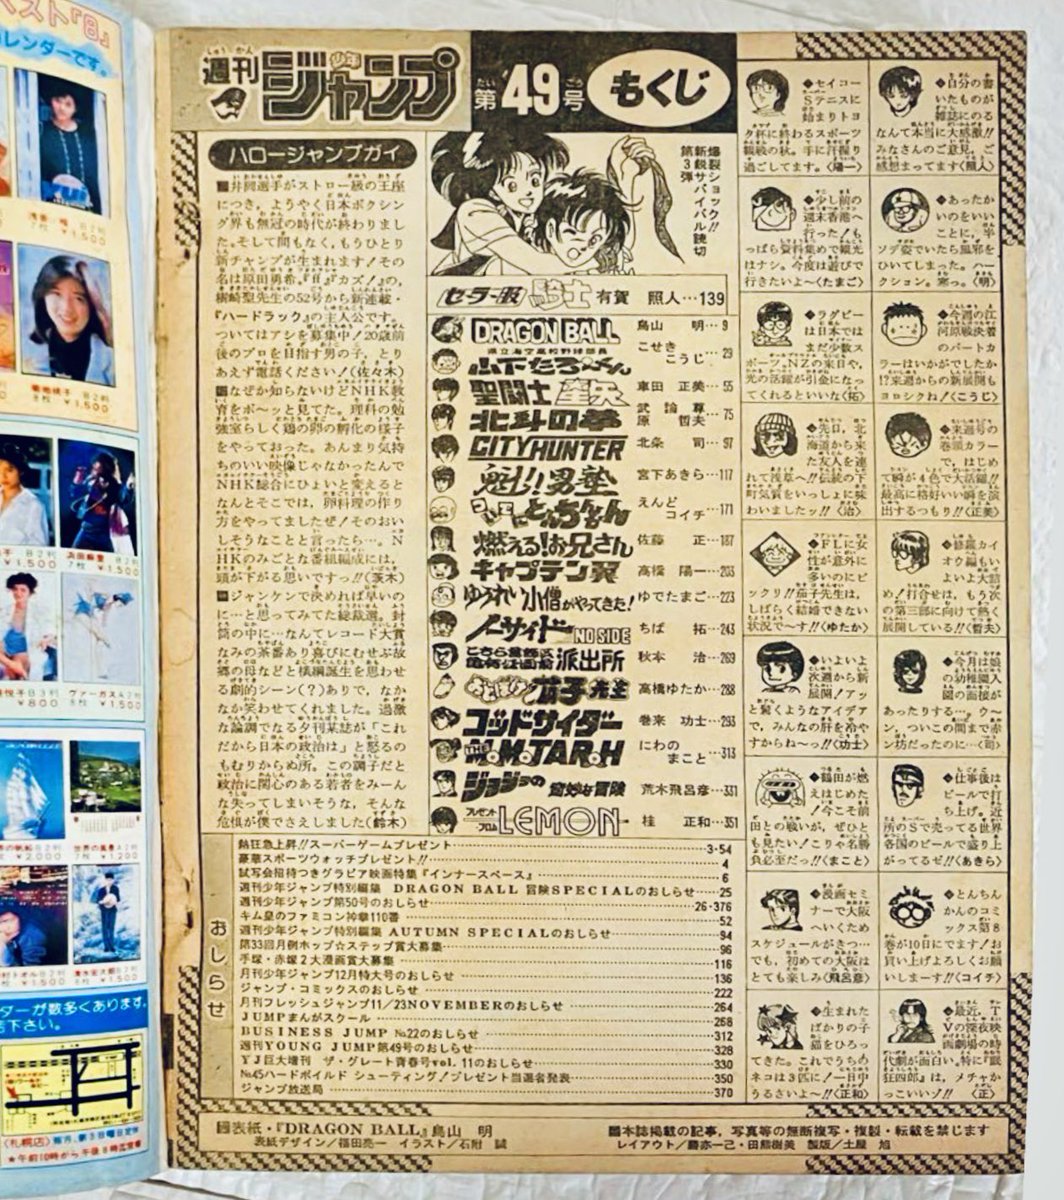 ベスト『8』
カレンダーです。
浅香 唯
7枚 ¥1,500
菊池桃子
8枚 ¥1,500
B2判
¥1,500
浜田麻里 B2判
7枚 ¥1,500
悦子 B3判
¥800
ヴァーガス A2判
¥1,500
¥2,000
世界の風景 A2判
7枚 ¥1,200
¥1,500
清水宏次朗 B2判
¥1,500
ターが数多くあります。
下さい。
〈札幌店〉毎月、第3日曜日定休
★午前10時から午後8時迄営業
週刊少年ジャンプ
第49号
もくじ
ハロージャンプガイ
■井岡選手がストロー級の王座
につき、ようやく日本ボクシン
グ界も無冠の時代が終わりまし
た。そして間もなく、もうひとり
新チャンプが生まれます!その
名は原田勇希。『ff』『カズ!』の、
樹崎聖先生の52号から新連載・
『ハードラック』の主人公です。
ついてはアシを募集中!20歳前
後のプロを目指す男の子、とり
あえず電話ください!(佐々木)
■なぜか知らないけどNHK教
育をボ〜ッと見てた。理科の勉
強室らしく鶏の卵の孵化の様子
をやっておった。あんまり気持
ちのいい映像じゃなかったんで
NHK総合にひょいと変えると
なんとそこでは、卵料理の作り
方をやってましたぜ!そのおい
しそうなことと言ったら…。N
HKのみごとな番組編成には、
頭が下がる思いですっ!!(茨木)
■ジャンケンで決めれば早いの
に…と思ってみてた総裁選。封
筒の中に…なんてレコード大賞
なみの茶番あり喜びにむせぶ故
郷の母などと横綱誕生を思わせ
る劇的シーン(?)ありで、なか
なか笑わせてくれました。過激
な論調でなる夕刊某誌が「これ
だから日本の政治は」と怒るの
もむりからぬ所。この調子だと
政治に関心のある若者をみーん
な失ってしまいそうな、そんな
危惧が僕でさえしました(鈴木)
爆裂ショック!!
新鋭サバイバル読切
第3弾
セーラー服騎士 有賀 照人…139
DRAGON BALL 鳥山 明…9
県立海空高校野球部員山下たろーくん こせきこうじ…29
聖闘士星矢 車田 正美…55
北斗の拳 武論尊 原 哲夫…75
CITY HUNTER 北条 司…97
魁!!男塾 宮下あきら…117
ついでにとんちんかん えんどコイチ…171
燃える!お兄さん 佐藤 正…187
キャプテン翼 高橋 陽一…203
ゆうれい小僧がやってきた! ゆでたまご…223
ノーサイド NO SIDE ちば 拓…243
こちら葛飾区亀有公園前派出所 秋本 治…269
おとぼけ茄子先生 高橋ゆたか…288
ゴッドサイダー 巻来 功士…293
THE MOMOTAROH にわのまこと…313
ジョジョの奇妙な冒険 荒木飛呂彦…331
プレゼント・フロム LEMON 桂 正和…351
◆セイコー
Sテニスに
始まりトヨ
タ杯に終わるスポーツ
観戦の秋。手に汗握り
過ごしてます。〈陽一〉
◆自分の書
いたものが
雑誌にのる
なんて本当に大感激!!
みなさんのご意見、ご
感想まってます〈照人〉
◆少し前の
週末香港へ
行った!も
っぱら資料集めで観光
はナシ。今度は遊びで
行きたいよ〜〈たまご〉
◆あったか
いのをいい
ことに、半
ソデ姿でいたら風邪を
ひいてしまった。ハー
クション。寒っ。〈明〉
◆ラグビー
は日本では
まだ少数ス
ポーツ。NZの来日や、
光の活躍が引金になっ
てくれるといいな〈拓〉
◆今週の江
河原戦決着
のパートカ
ラーはいかがでしたか
!?来週からの新展開も
ヨロシクね!〈こうじ〉
◆先日、北
海道から来
た友人を連
れて浅草へ!!伝統の下
町気質をいっしょに味
わいましたッ!!〈治〉
◆来週号の
巻頭カラー
で、はじめ
て瞬が4色で大活躍!!
最高に格好いい瞬を演
出するつもり!!〈正美〉
◆FLに女
性が意外に
多いのにビ
ックリ!!茄子先生は、
しばらく結婚できない
状況で〜す!!〈ゆたか〉
◆修羅カイ
オウ編もい
よいよ大詰
め!打合せは、もう次
の第三部に向けて熱く
展開している!!〈哲夫〉
◆いよいよ
次週から新
展開!アッ
と驚くようなアイデア
で、みんなの肝を冷や
すからね〜っ!!〈功士〉
◆今月は娘
の幼稚園入
園の面接が
あったりする…。ウ〜
ン、ついこの間まで赤
ン坊だったのに…〈司〉
◆鶴田が燃
えはじめた
!今こそ前
田との戦いが、ぜひと
も見たい!こりゃ名勝
負必至だっ!!〈まこと〉
◆仕事後は
ビールで打
ち上げ。近
所のSで売ってる世界
各国のビールで盛り上
がってるゼ!!〈あきら〉
◆漫画セミ
ナーで大阪
へいくため
スケジュールがきつ…
でも、初めての大阪は
とても楽しみ〈飛呂彦〉
◆とんちん
かんのコミ
ックス第8
巻が10日にでます!お
買い上げよろしくお願
いしまーす!!〈コイチ〉
◆生まれた
ばかりの子
猫をひろっ
てきた。これでうちの
ネコは3匹に!一日中
うるさいよ〜!!〈正和〉
◆最近、T
Vの深夜映
画劇場の時
代劇が面白い。特に『眠
狂四郎』は、メチャか
っこいいゾ!!〈正〉
おしらせ
熱狂急上昇!!スーパーゲームプレゼント…3・54
豪華スポーツウォッチプレゼント!!…4
試写会招待つきグラビア映画特集『インナースペース』…6
週刊少年ジャンプ特別編集 DRAGON BALL 冒険SPECIALのおしらせ…25
週刊少年ジャンプ第50号のおしらせ…26・376
キム皇のファミコン神拳110番…52
週刊少年ジャンプ特別編集 AUTUMN SPECIALのおしらせ…94
第33回月例ホップ☆ステップ賞大募集…96
手塚・赤塚2大漫画賞大募集…116
月刊少年ジャンプ12月特大号のおしらせ…136
ジャンプ・コミックスのおしらせ…222
月刊フレッシュジャンプ11/23NOVEMBERのおしらせ…264
JUMPまんがスクール…268
BUSINESS JUMP No.22のおしらせ…312
週刊YOUNG JUMP第49号のおしらせ…328
YJ巨大増刊 ザ・グレート青春号vol.11のおしらせ…330
No.45ハードボイルド シューティング!プレゼント当選者発表…350
ジャンプ放送局…370
■表紙・『DRAGON BALL』鳥山 明
表紙デザイン/福田亮一 イラスト/石附 誠
■本誌掲載の記事、写真等の無断複写・複製・転載を禁じます
レイアウト/勝亦一己・田熊樹美 製版/土屋 旭